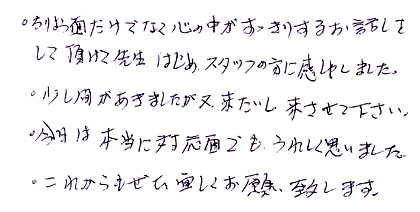 。お面だけでなく心の中がすっきりするお話しを
して頂けて先生はじめ、スタッフの方に感じしました。
。少し間があきましたが又、来たいし来させて下さい。
。今日は本当に対応面でも、うれしく思いました
。これからもぜひ宜しくお願い致します。